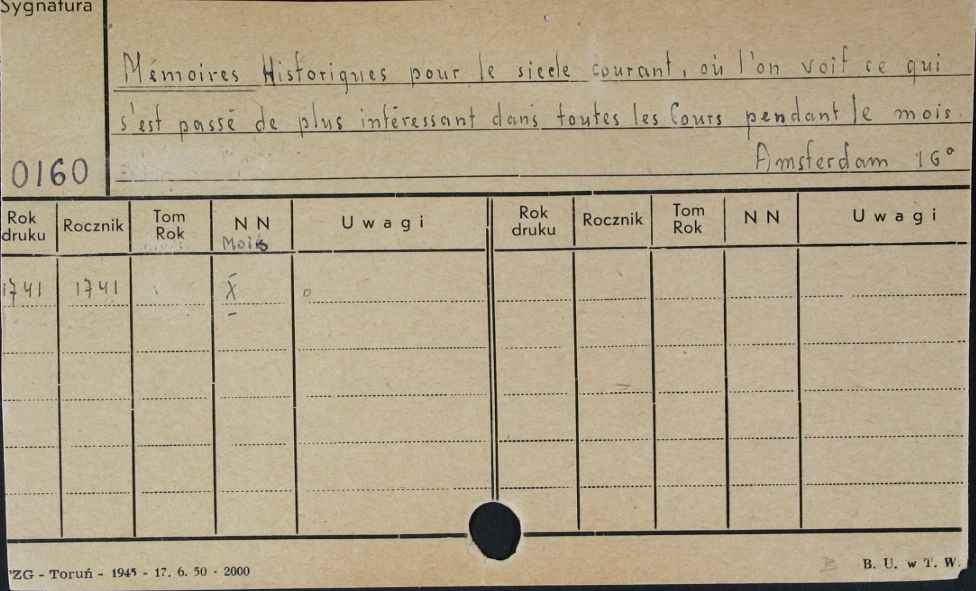 Sygnatura
Mémoires Historiques pour le siecle courant, où l'on voit ce qui
s'est passé de plus intéressant dans toutes les Cours pendant le mois.
0160
Amsterdam 16°
Rok druku Rocznik Tom Rok NN Uwagi Rok druku Rocznik Tom Rok NN Uwagi
Mois
1741 1741 X
ZG - Toruń - 1945 - 17. 6. 50 - 2000
B. U. w T. W.